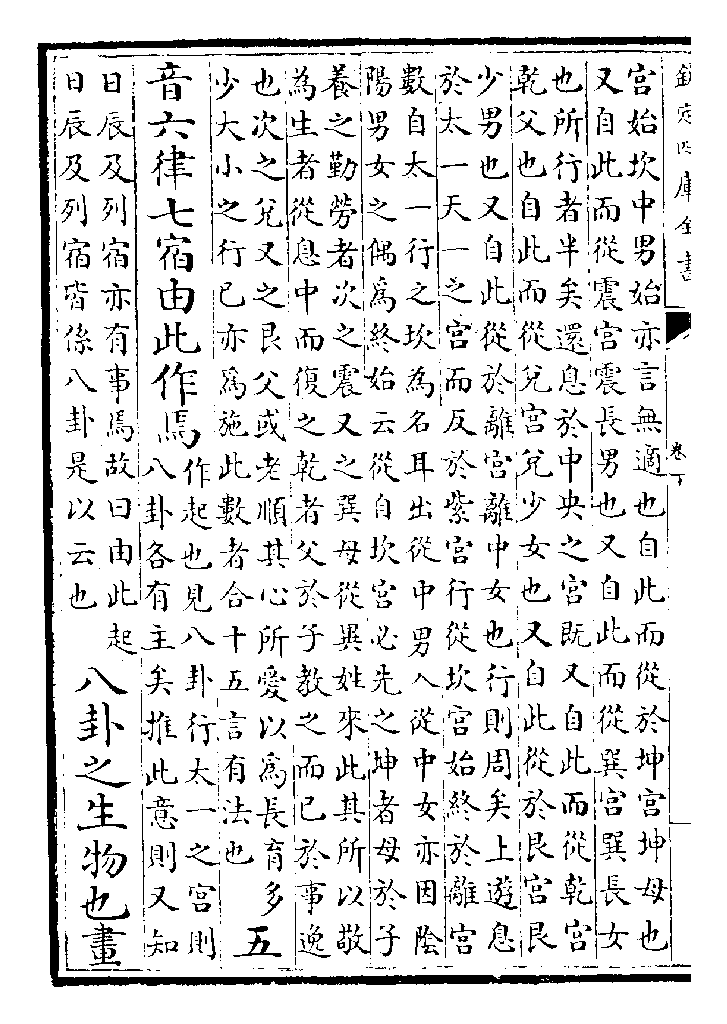 欽定四庫全書 卷下
宫始坎中男始亦言無適也自此而從於坤宫坤母也
又自此而從震宫震長男也又自此而從巽宫巽長女
也所行者半矣還息於中央之宫既又自此而從乾宫
乾父也自此而從兊宫兊少女也又自此從於艮宫艮
少男也又自此從於離宫離中女也行則周矣上遊息
於太一天一之宫而反於紫宫行從坎宫始終於離宫
數自太一行之坎為名耳出從中男入從中女亦因陰
陽男女之偶為終始云從自坎宫必先之坤者母於子
養之勤勞者次之震又之巽母從異姓來此其所以敬
為生者從息中而復之乾者父於子教之而已於事逸
也次之兊又之艮父或老順其心所愛以為長育多
少大小之行已亦為施此數者合十五言有法也
五
音六律七宿由此作焉
作起也見八卦行太一之宫則
八卦各有主矣推此意則又知
日辰及列宿亦有事焉故曰由此起
日辰及列宿皆係八卦是以云也
八卦之生物也畫